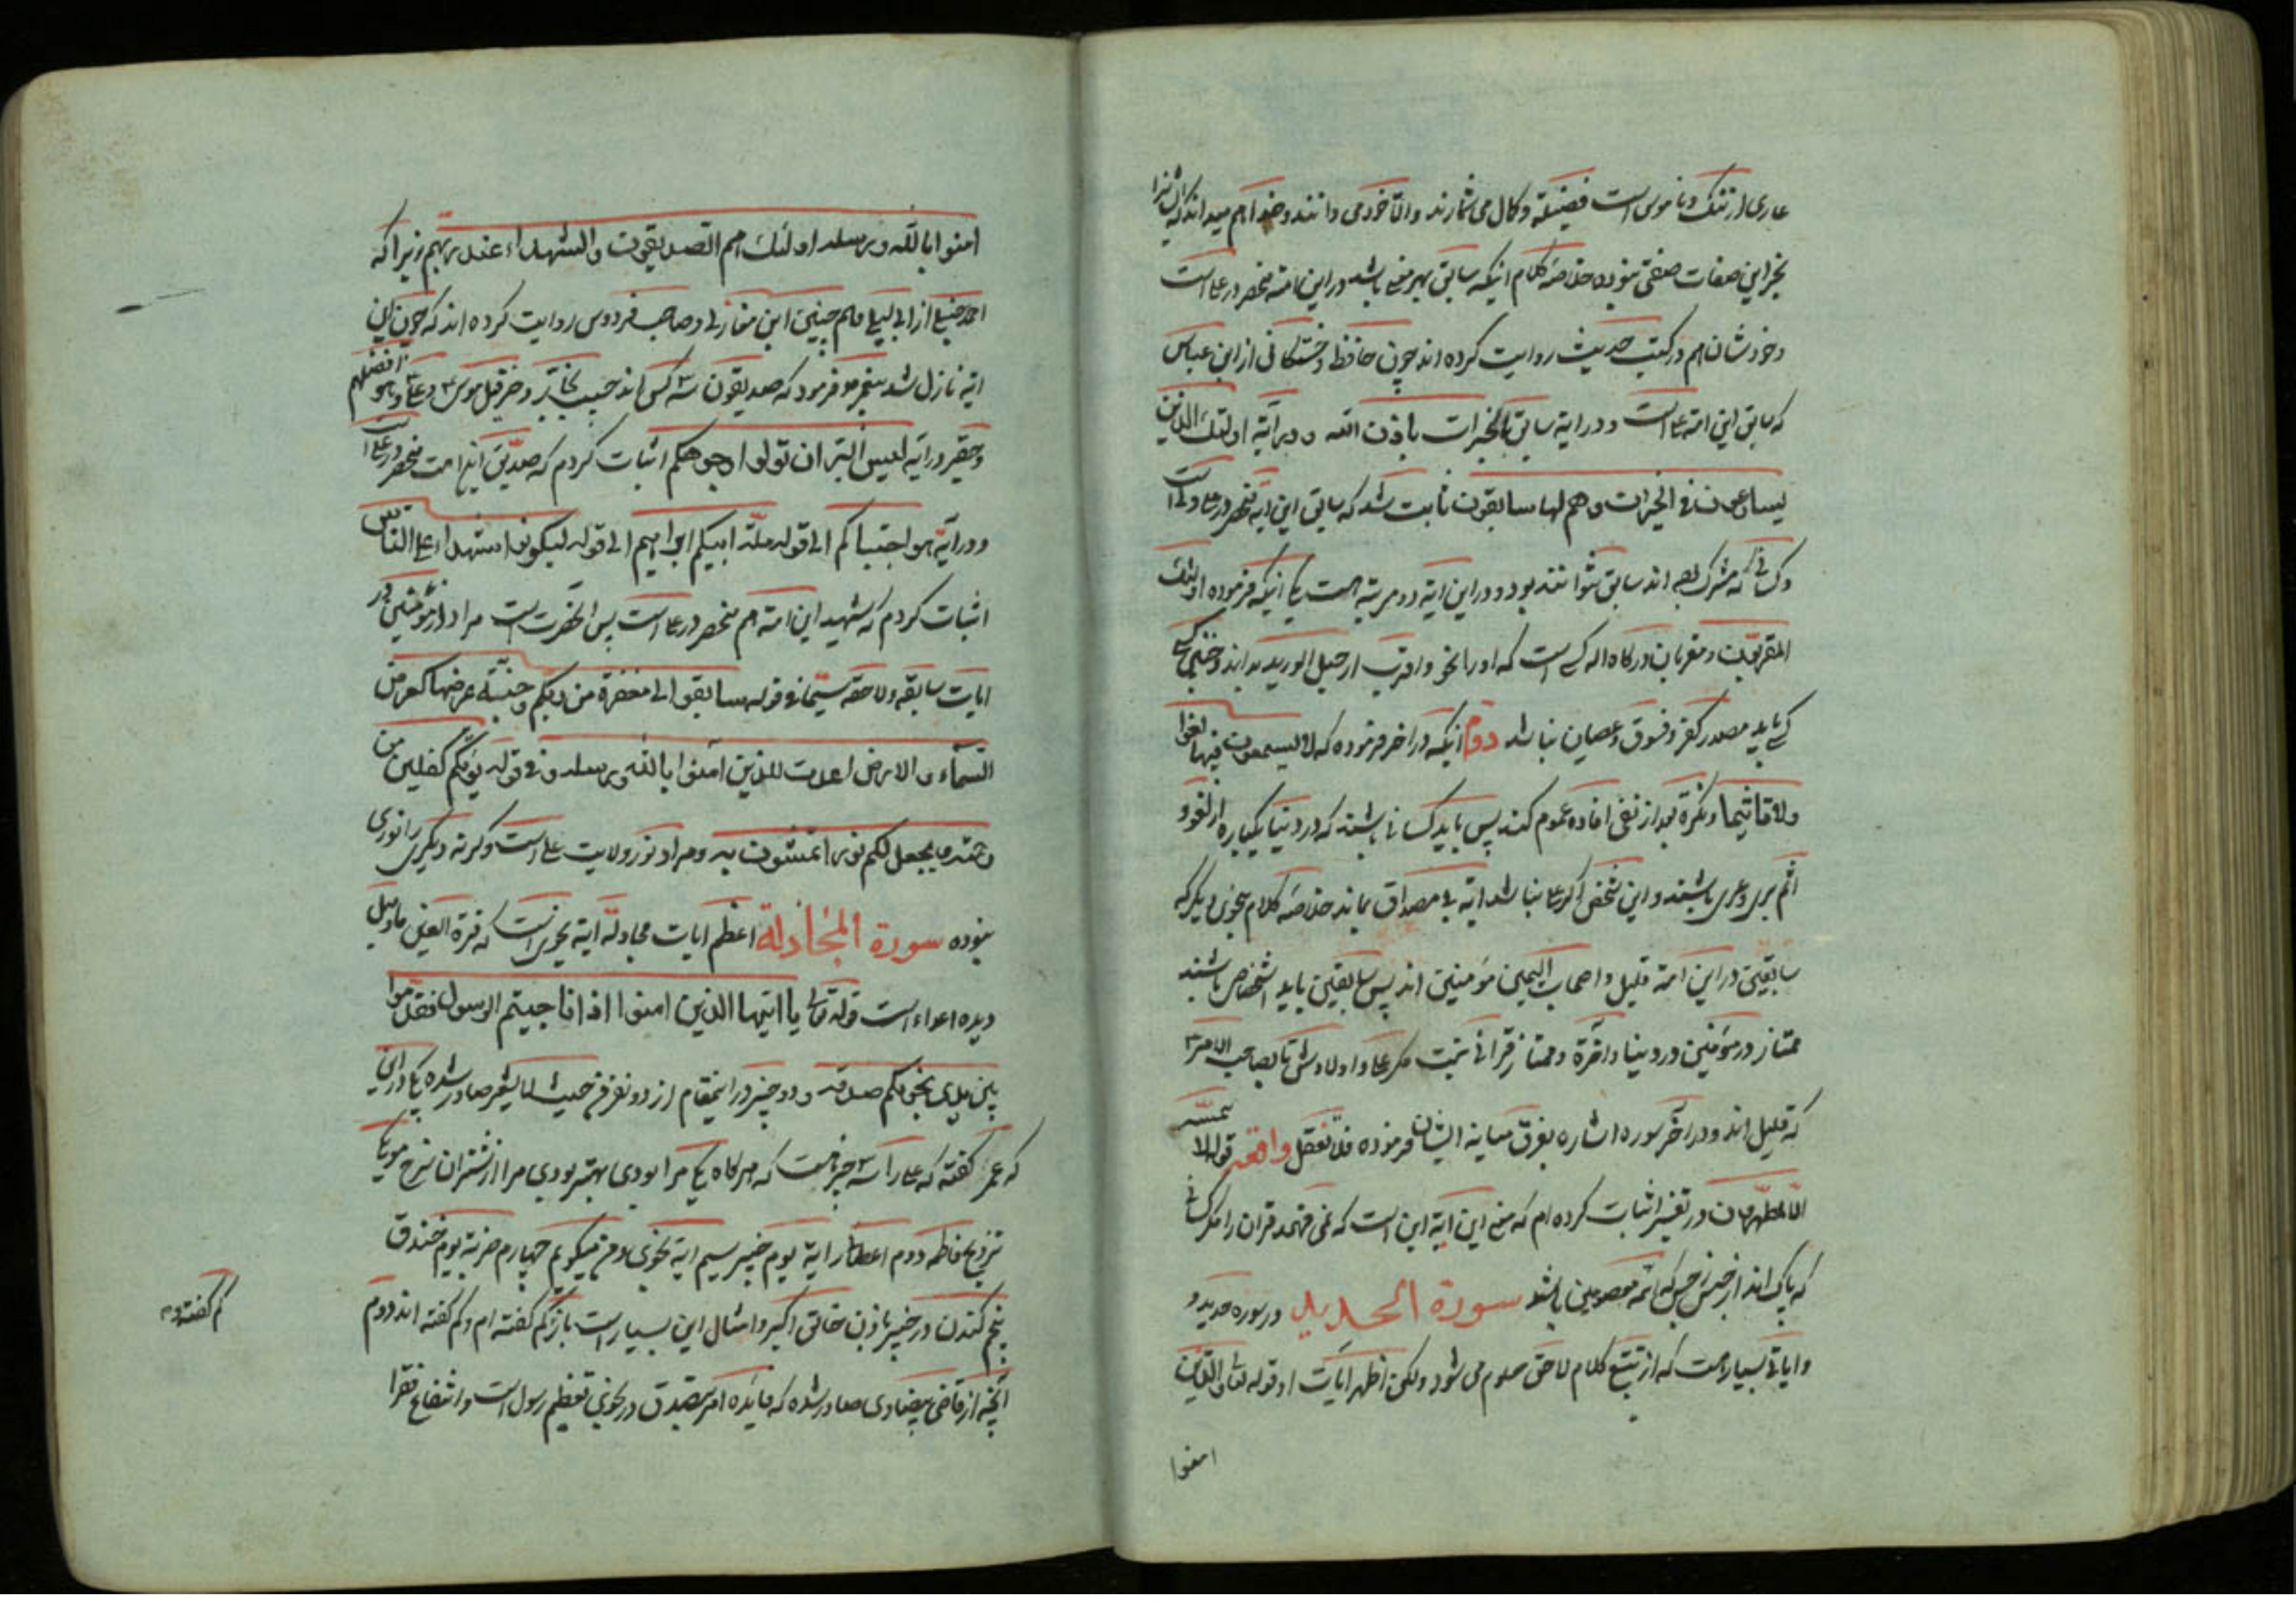 عاری از ننک و ناموس است فضیلة و کمال می شمارند والا خود می دانند و خدا هم میداند که ایشانرا
بجز این صفات صفتی نبوده خلاصه کلام اینکه سابق بهر معنی باشد در این امته منحصر در علی است
و خودشان هم در کتب حدیث روایت کرده اند چون حافظ و خشکانی از ابن عباس
که سابق این امته علی است و در ایه سابق بالخیرات باذن الله و در آیه اولئک الذین
یسارعون فی الخیرات وهم لها سابقون ثابت شد که سابق این ایه منحصر در علی و است
و کسانی که مشرک بوده اند سابق نتوانند بود و در این ایه دو مرتبه است یکی اینکه فرموده اولئک
المقربون و مقربان درکاه اله کسی است که او را نحن اقرب از حبل الورید بداند و چنین کسی
که باید مصدر کفر و فسوق و عصیان نباشد دوم اینکه در اخر فرموده که لا یسمعون فیها لغوا
ولا تاثیما و نکرة بعد از نفی افاده عموم کند پس باید کسانی باشند که در دنیا یکباره از لغو و
اثم بری و عری باشند و این شخص اکر علی نباشد ایه بی مصداق بماند خلاصه کلام بنحوی دیکر که
سابقین در این امة قلیل و اصحاب الیمین مؤمنین اند پس سابقین باید اشخاص باشند
ممتاز در مؤمنین در دینا و آخرة و ممتاز قرآنی نیست مکر علی و اولادش تا بصاحب الامر ع
که قلیل اند و در آخر سوره اشاره بفرق میانه ایشان فرموده فلا تغفل واقعه قوله لا یمسه
الا المطهرون در تفسیر اثبات کرده ام که معنی این آیة این است که نمی فهمد قرآن را مکر کسانی
که پاک اند از جنس رجس که ائمه معصومین باشند سورة الحدید در سوره حدید و
و ایاتی بسیار هست که از تتبع کلام لاحق معلوم می شود ولکن اظهر ایات او قوله تعالی والذین
امنوا
امنوا بالله ورسله اولئک هم الصدیقون والشهداء عند ربهم زیرا که
احمد حنبل از ابی لیلی و هم چنین ابن مغازلی و صاحب فردوس روایت کرده اند که چون این
ایه نازل شد پیغمبر ص فرمود که صدیقون سه کس اند حبیب نجار و خرقیل موسی و علی و هو افضلهم
و حقیر در ایه لیس البر ان تولوا وجوهکم اثبات کردم که صدیق این امت منحصر در علی است
و در آیه هو اجتباکم الی قوله ملة ابیکم ابراهیم الی قوله لیکونوا شهداء علی الناس
اثبات کردم که شهید این امته هم منحصر در علی است پس انحضرت است مراد از مؤمنین در
ایات سابقه و لاحقه سیما فی قوله سابقوا الی مغفرة من ربکم وجنة عرضها کعرض
السماء والارض اعدت للذین آمنوا بالله ورسله و فی قوله یؤتکم کفلین من
رحمته ویجعل لکم نورا تمشون به و مراد نور ولایت علی است و کرنه دیکری را نوری
نبوده سورة المجادلة اعظم ایات مجادله آیة نجوی است که قرة العین ما و میل
دیده اعداء است قوله تعالی یا ایها الذین امنوا اذا ناجیتم الرسول فقدموا
بین یدی نجویکم صدقه و دو چیز در اینمقام از دو نفر حیث لا یشعر صادر شده یکی در این
که عمر کفته که علی را سه چیز هست که هرکاه یکی مرا بودی بهتر بودی مرا از شتران سرخ موی یکی
تزویج فاطمه دوم اعطاء رایة یوم خیبر سیم ایه نجوی و من میکویم چهارم ضربة یوم خندق
پنجم کندن در خیبر باذن خالق اکبر و امثال این بسیار است باز کم کفته ام و کم کفته اند دوم
آنچه از قاضی بیضاوی صادر شده که فائده امر بتصدق در نجوی تعظیم رسول است و انتفاع فقرا
کم کفته و م